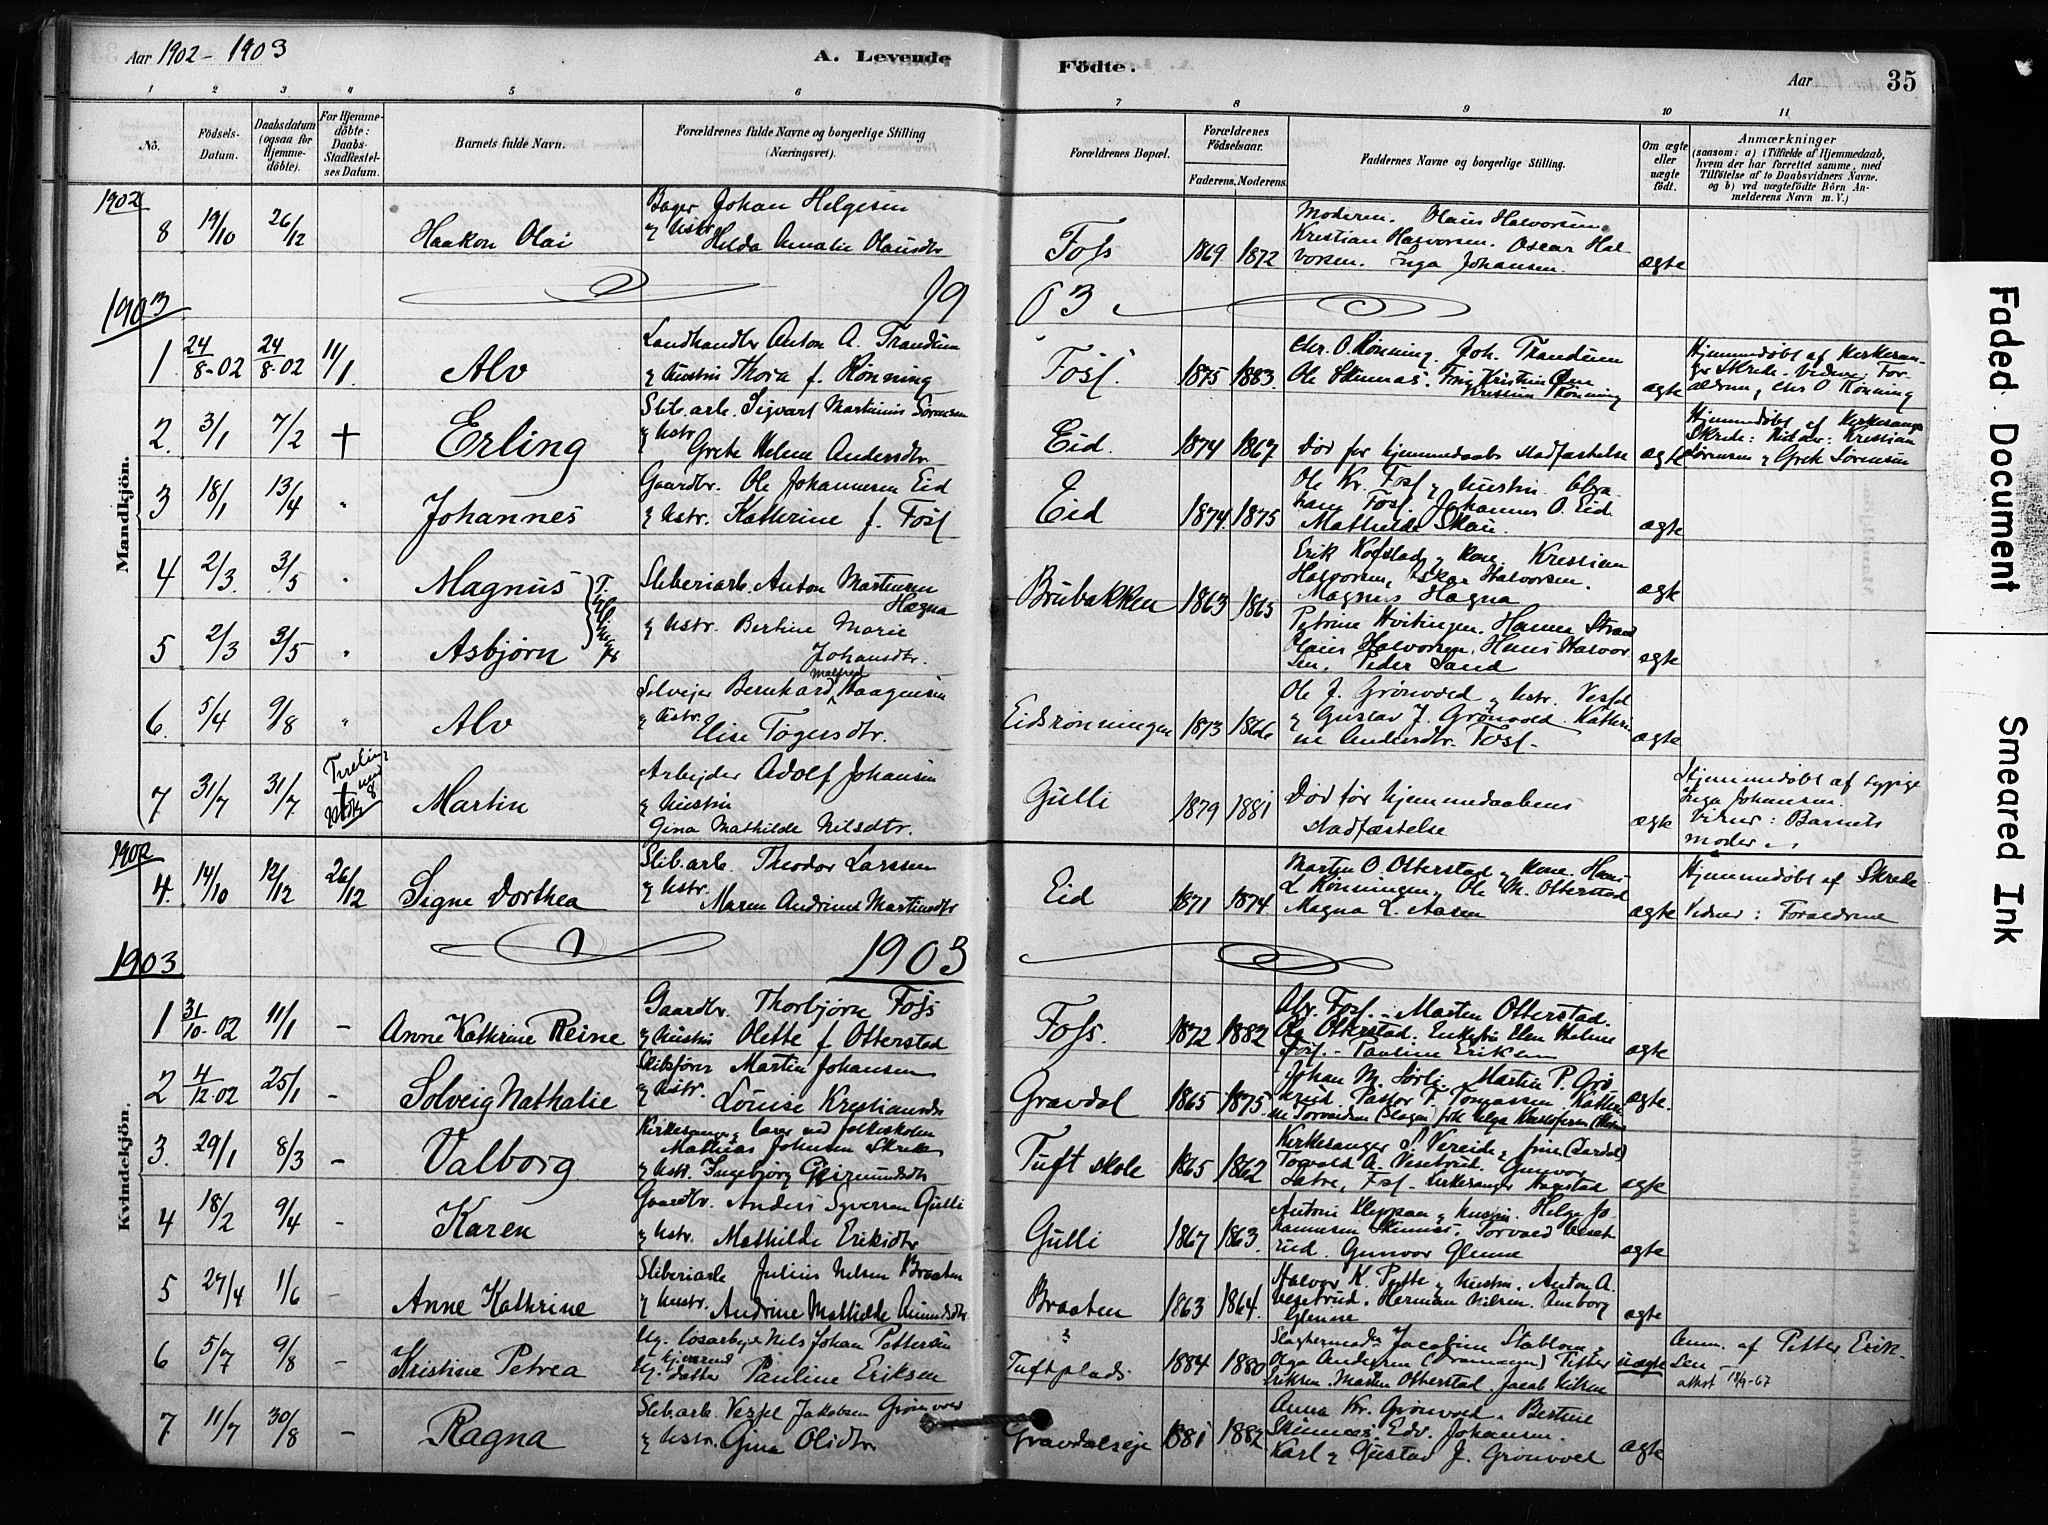 Aar 1902 - 1903
A. Levende
Födte.
Aar
35
1 2 3 4 5 6 7 8 9 10 11
No.
Födsels-Datum.
Daabsdatum (ogsaa for Hjemmedöbte).
For Hjemmedöbte: Daabs-Stadfæstelses Datum.
Barnets fulde Navn.
Forældrenes fulde Navne og borgerlige Stilling (Næringsvei).
Forældrenes Bopæl.
Forældrenes Födselsaar.
Faderens. Moderens.
Faddernes Navne og borgerlige Stilling.
Om ægte eller uægte födt.
Anmærkninger (saasom: a) i Tilfælde af Hjemmedaab, hvem der har forrettet samme, med Tilföielse af to Daabsvidners Navne, og b) ved uægtefödte Börn Anmelderens Navn m. V.)
Mandkjön.
1902
8 19/10 26/12 Haakon Olai
Bager Johan Helgesen
& Hstr. Hilda Amalie Olausdtr
Foss 1869 1872
Moderen. Olaus Halvorsen
Kristian Halvorsen. Oscar Halvorsen. Inga Johansen
ægte
1903
19
03
1. 24/8-02 24/8-02 11/1 Alv
Landhandler Anton A. Trandum
& Hustru Thora f. Rønning
Foss. 1875 1883.
Chr. O. Rønning. Joh. Trandum
Ole Skinnes.
ægte
Hjemmedøbt af Kirkesanger Skrede. Vidner: Forældrene, Chr O. Rønning
2. 3/1 7/2 + Erling
Slib.arb. Sigvart Martinius Sørensen
& Hstr. Grete Helene Andersdtr.
Eid. 1874 1867
Død før hjemmedaabs stadfæstelse
ægte
Hjemmedøbt af Kirkesanger Skrede: Vidner: Kristian Sørensen & Grete Sørensen
3 18/1 13/4 " Johannes
Gaardbr. Ole Johannesen Eid
& Hstr. Kathrine f. Foss
Eid 1874. 1875
Ole Kr. Foss & Hustru.
Foss. Johannes O. Eid.
Mathilde Skau.
ægte
4 2/3. 3/5 " Magnus
Tvillinger
Sliberiarb. Anton Martinsen Hagna
& Hstr. Bertine Marie Johansdtr.
Brubakken 1863 1865
Erik Kopslad & Kone. Kristian
Halvorsen, Oskar Halvorsen.
Magnus Hagna
ægte
5 2/3 3/5 " Asbjørn
Petrine Hvitingen. Hanna Strand
Olaus Halvorsen. Hans Halvorsen. Peder Sand
ægte
6. 5/4 9/8 " Alv
Selveier Bernhard Malfred Haagensen
& Hstr. Elise Tøgersdtr.
Eidsrønningen 1873 1866
Ole J. Grønvold & Hstr. Vessel
& Gustav J. Grønvold. Kathrine Andersdtr. Foss.
ægte
7. 31/7 31/7. Martin
Arbejder Adolf Johansen
& Hustru
Gina Mathilde Nilsdtr.
Gulli 1879 1881
Død før hjemmedaabens
stadfæstelse
ægte
Hjemmedøbt af
Inga Johansen.
Vidner: Barnets
moder
Kvindekjön.
1902
4. 14/10 12/12 26/12 Signe Dorthea
Slib.arb. Theodor Larsen
& Hstr. Maren Andrine Martinsdtr
Eid 1871 1874
Martin O. Otterstad & Kone. Hans
L. Rønningen, Ole M. Otterstad
Magna L. Aasen
ægte
Hjemmedøbt af Skrede
Vidner: Forældrene
1903
1903
1 31/10-02 11/1 - Anne Kathrine Reine
Gaardbr. Thorbjørn Foss
& Hustru Olette f Otterstad
Foss. 1872 1882
Abr. Foss. - Marten Otterstad.
Ole Otterstad. Enkefru Elen Helene
Foss. - Pauline Eriksen
ægte
2 4/12-02 25/1 - Solveig Nathalie
Skibsfører Martin Johansen
& Hstr. Louise Kristiansdtr
Gravdal 1865 1875
Johan M. Sørli. Martin P.
Pastor F. Tomassen
ægte.
3. 29/1 8/3 - Valborg
Kirkesanger & lærer ved folkeskolen
Mathias Johnsen Skrede
& Hstr. Ingebjørg Geirmundsdtr
Tuft skole 1865 1862
Kirkesanger S. Vereide & frue (Aardal)
Torvald A. Vesetrud. Gunvor
Foss. Kirkesanger Hagestad
ægte
4 18/2 9/4 - Karen
Gaardbr. Anders Syversen Gulli
& Hstr. Mathilde Eriksdtr
Gulli 1867 1863.
Antoni Kleppan & Hustru. Helge Johannesen Skinnes. Torvald Vesetrud. Gunvor Glenne
ægte
5 27/4 1/6 - Anne Kathrine
Sliberiarb Julius Nilsen Braaten
& Hustr. Andrine Mathilde Amundsdtr
Braaten 1863 1864
Halvor K. Pytte & Hustru. Anton A.
Vesetrud. Herman Nilsen. Amborg
Glenne
ægte
6 5/7 9/8 - Kristine Petrea
Ug. løsarbejder Nils Johan Pettersen
Ug. hjemmev. datter Pauline Eriksen
Tuftplads 1884 1880
Jacobine
Olga Andersen (Drammen) Petter
Eriksen. Marten Otterstad. Jacob Nilsen
uægte
Anm. af Petter Eriksen
attest 18/9-67
7. 11/7 30/8 - Ragna
Slib.arb. Vessel Jakobsen Grønvold
& Hstr. Gina Olsdtr.
Gravdalseje 1881 1882
Anna Kr. Grønvold. Bertine
Skinnes. Edv. Johansen.
Karl & Gustav J. Grønvold
ægte
Faded Document
Smeared Ink